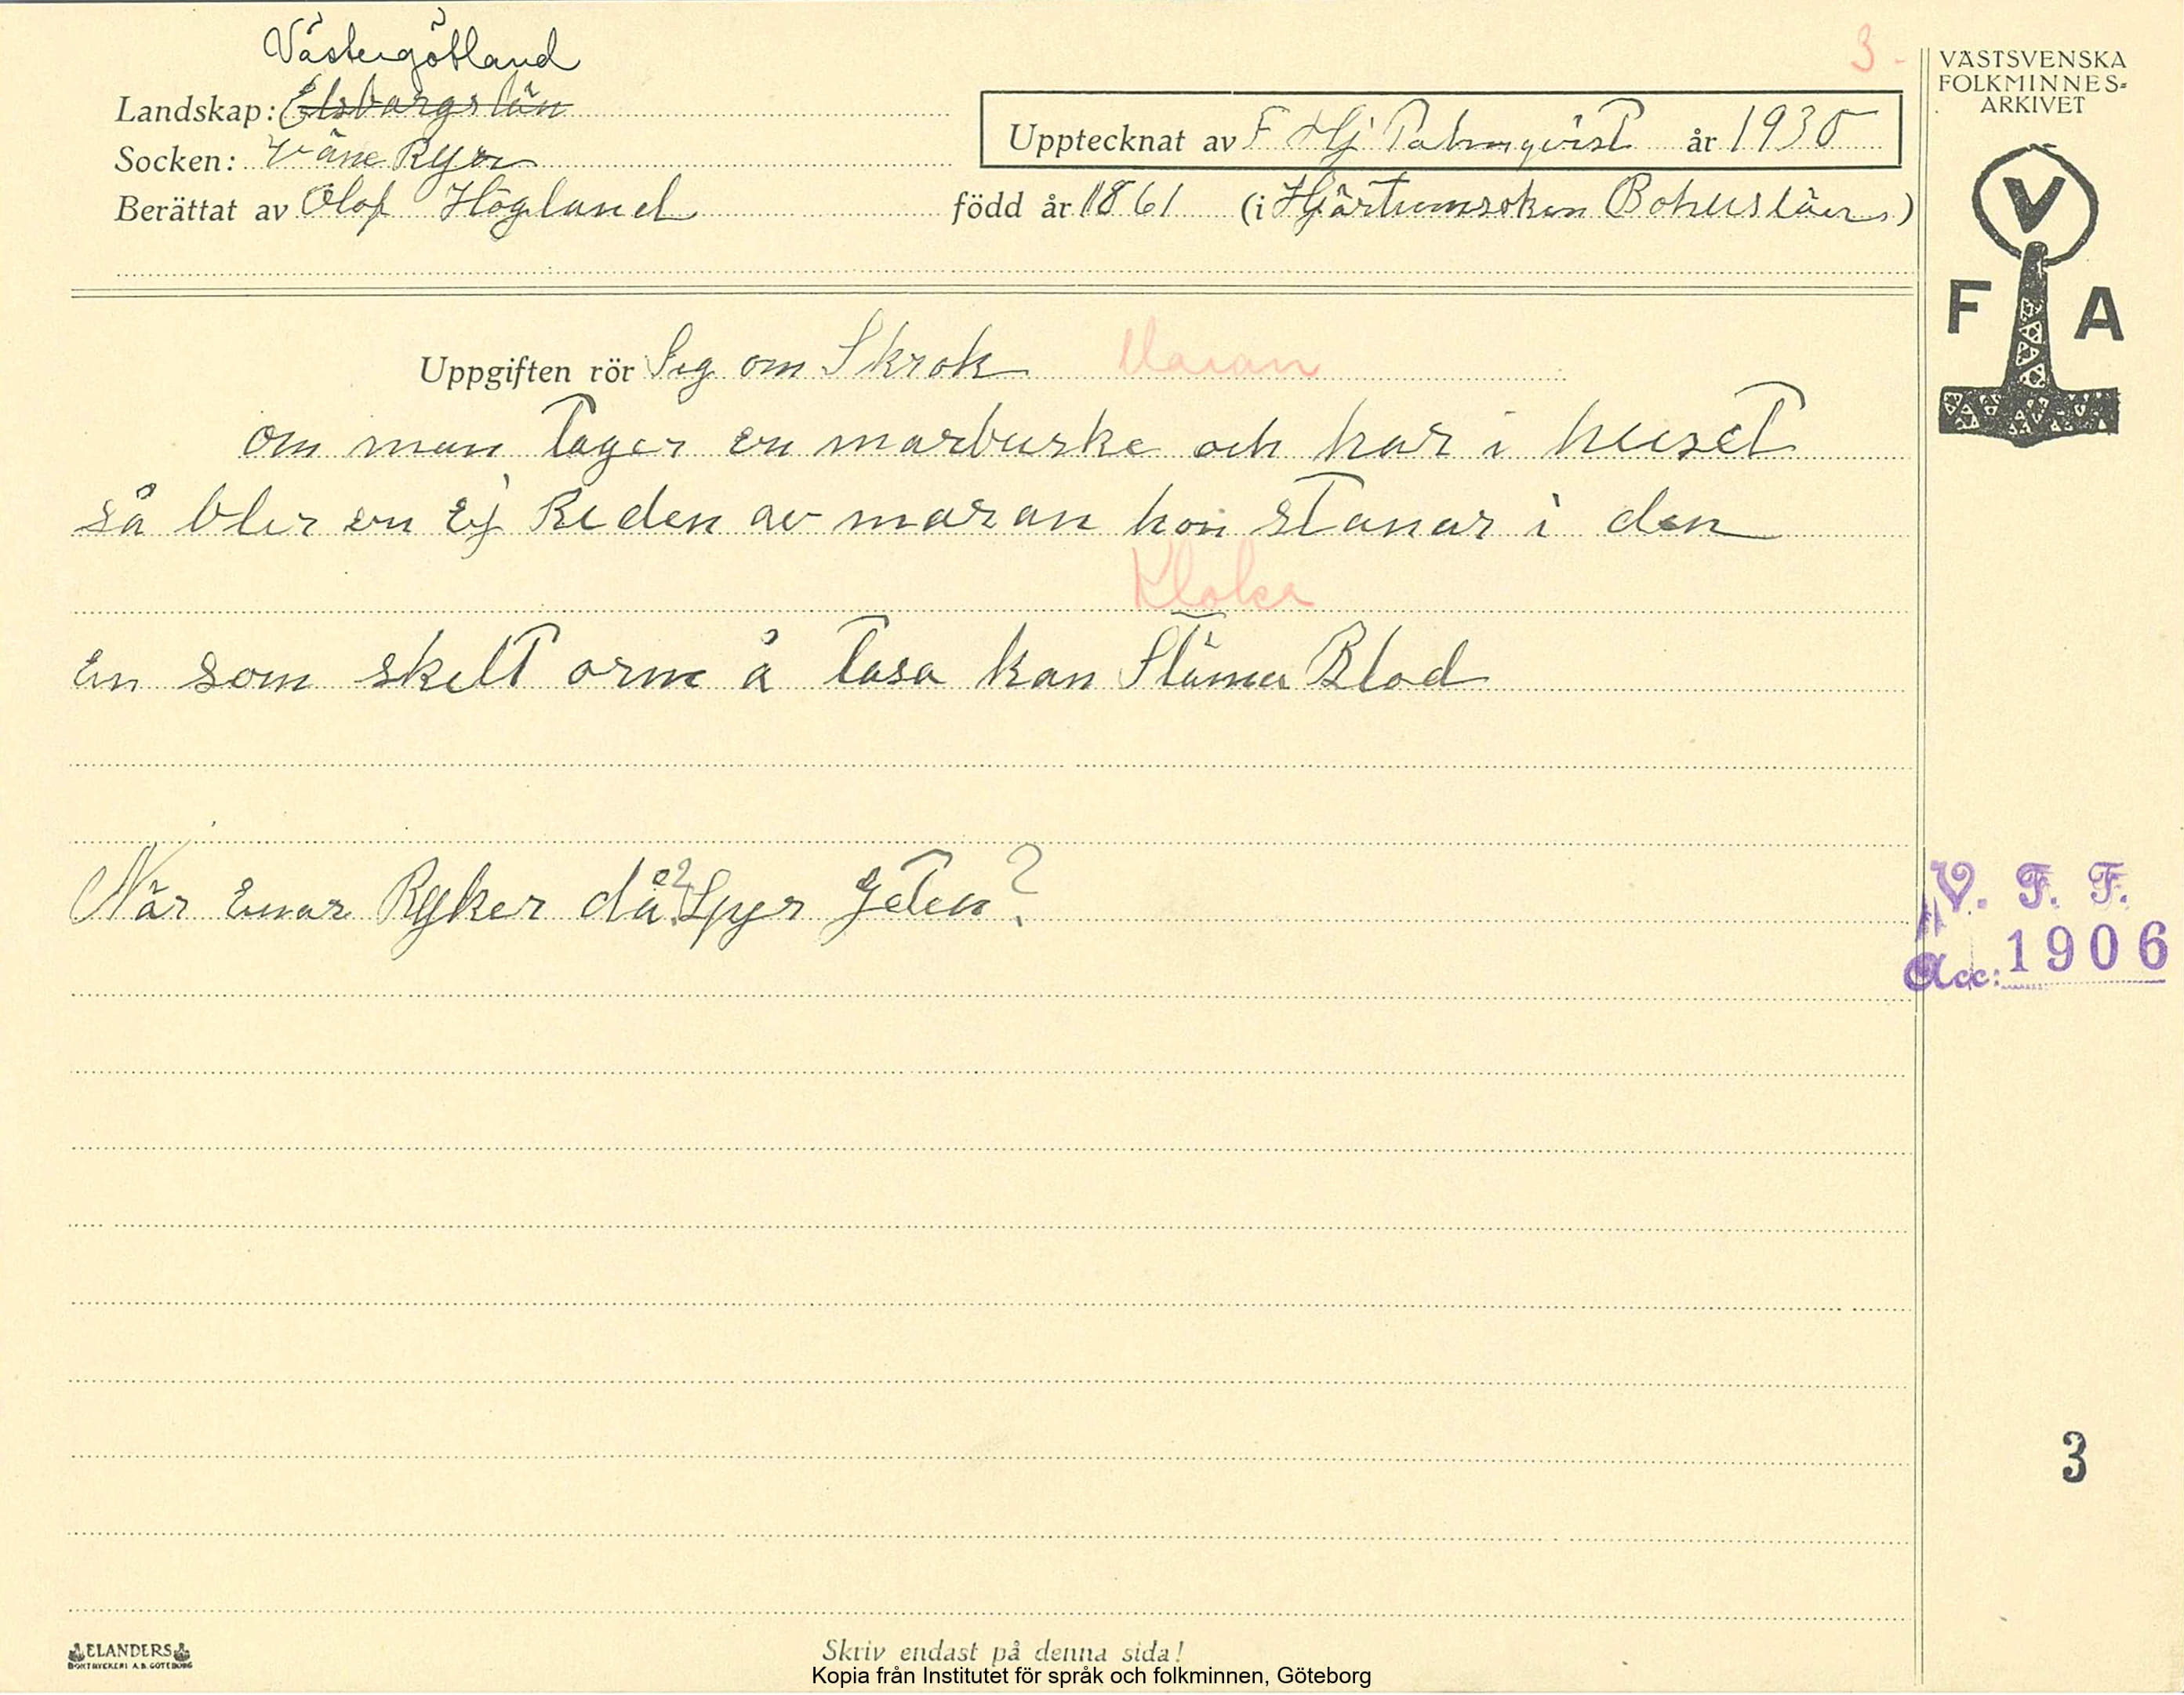 Västergötland
3-
VÄSTSVENSKA
FOLKMINNES-
ARKIVET
Landskap: Elsborgs län
Socken: Väne Ryr
Upptecknat av F Hj Palmqvist år 1930
Berättat av Olof Höglund född år 1861 (i Hjärtumsoken Bohuslän)
V
F A
Uppgiften rör Seg om Skrok Maran
om man tager en marburke och har i huset
så blir en Ej Reden av maran hon stanar i den
Kloka
En som skelt orm å tasa kan Stäma Blod
När Enar Ryker då? Spyr Geten?
V. F. F.
Acc: 1906
3
ELANDERS
BOKTRYCKERI A.B. GÖTEBORG
Skriv endast på denna sida!
Kopia från Institutet för språk och folkminnen, Göteborg